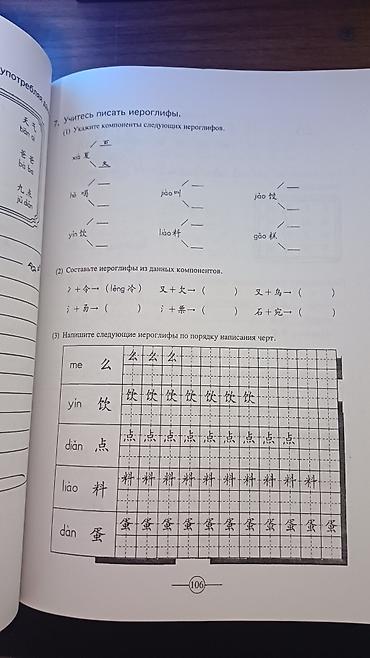 употребляя
天气
tiān qì
爸爸
bà ba
九点
jiǔ diǎn
7. Учитесь писать иероглифы.
(1) Укажите компоненты следующих иероглифов.
xià 夏 百 夂
hē 喝
jiào 叫
jiǎo 饺
yǐn 饮
liào 料
gāo 糕
(2) Составьте иероглифы из данных компонентов.
冫+令→ (lěng 冷) 又+欠→ ( ) 又+鸟→ ( )
氵+勇→ ( ) 氵+票→ ( ) 石+宛→ ( )
(3) Напишите следующие иероглифы по порядку написания черт.
me 么 么 么 么
yǐn 饮 饮 饮 饮 饮 饮 饮 饮
diǎn 点 点 点 点 点 点 点 点 点 点
liào 料 料 料 料 料 料 料 料 料 料 料
dàn 蛋 蛋 蛋 蛋 蛋 蛋 蛋 蛋 蛋 蛋 蛋 蛋
106